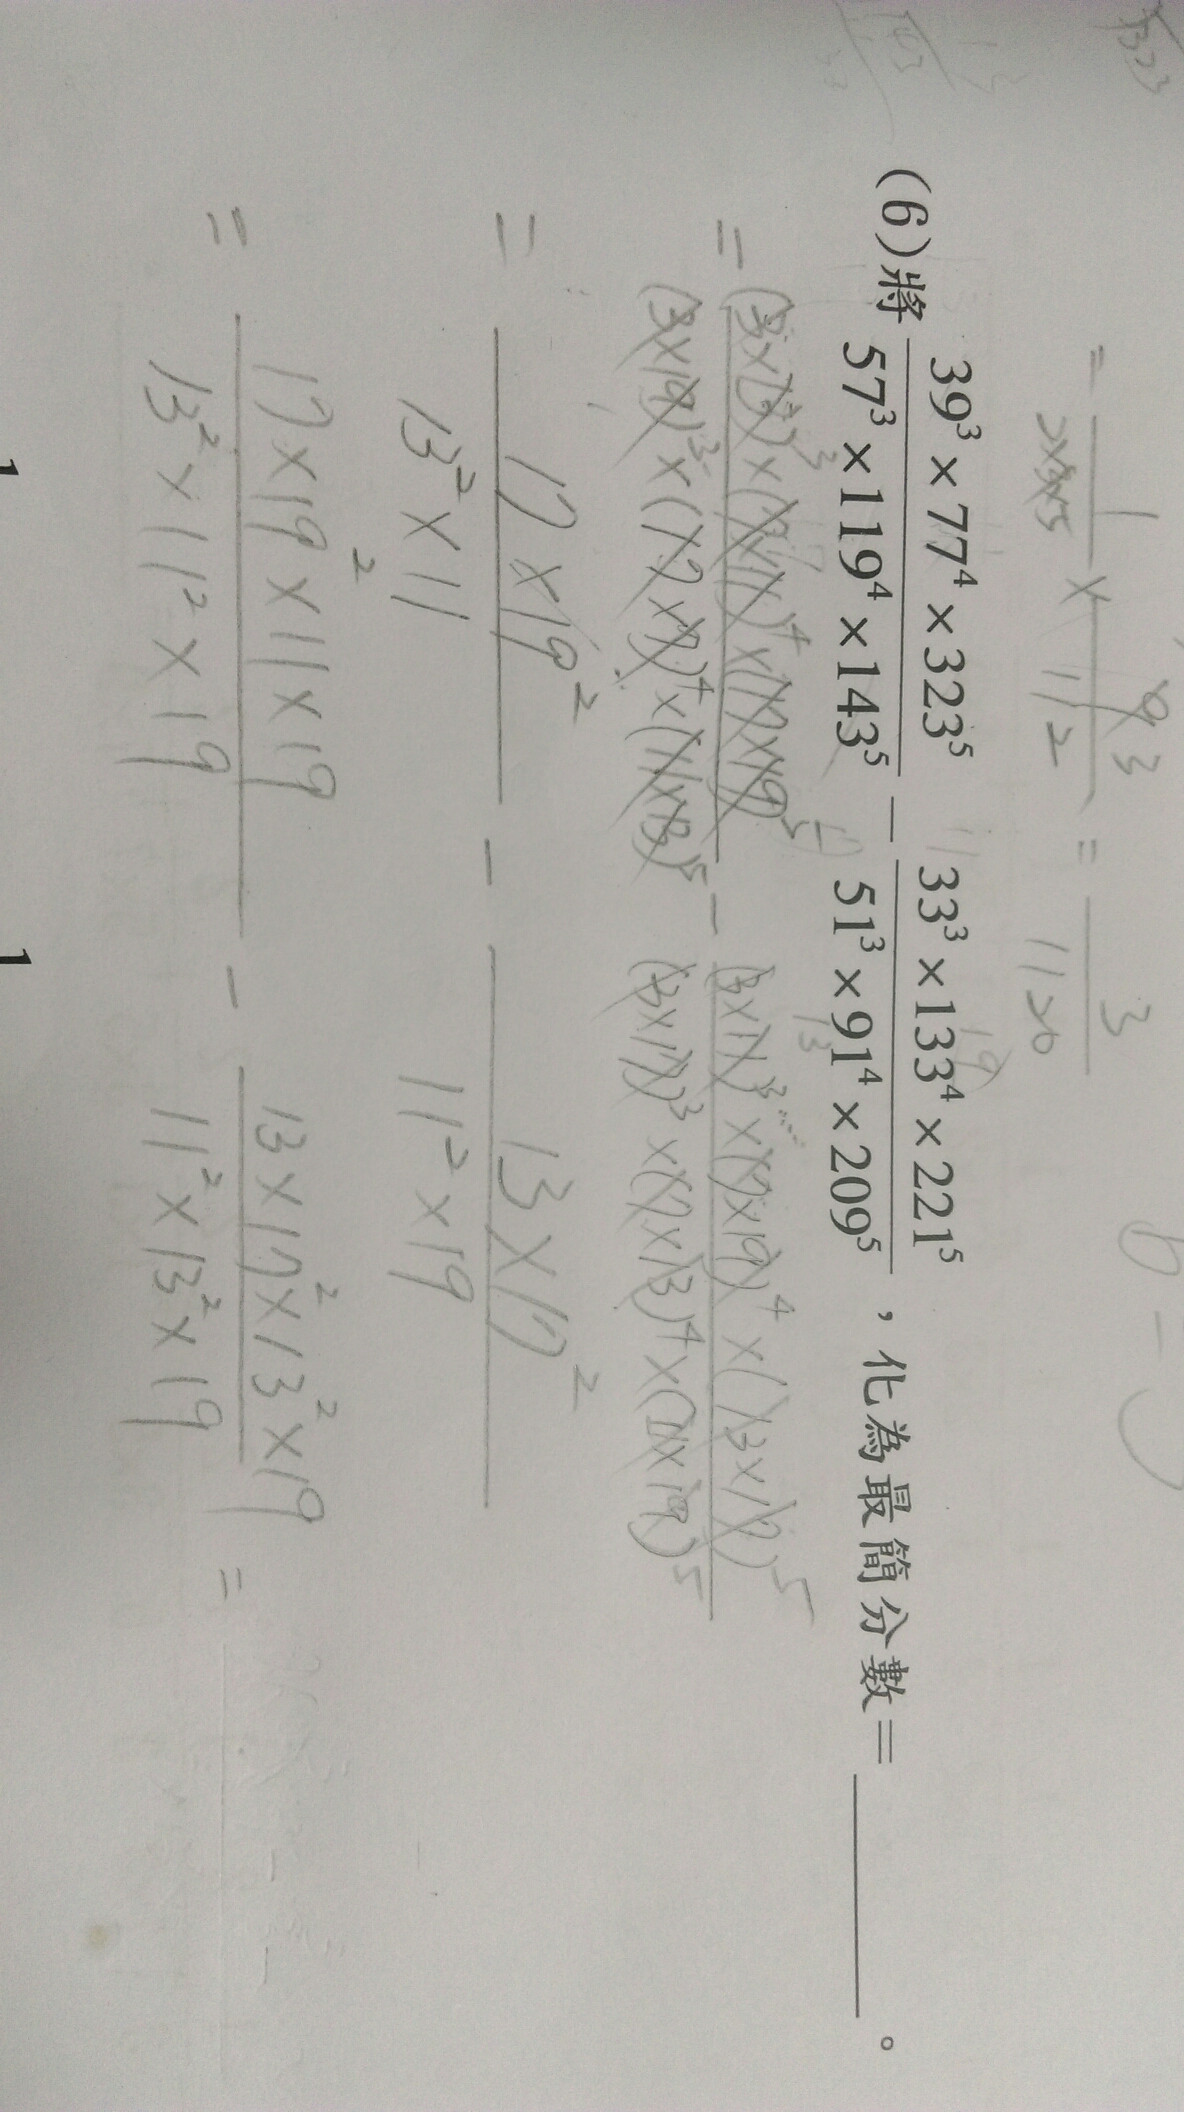 = 1/2×3×5 × 9³/11² = 3/1120
(6)將 39³×77⁴×323⁵/57³×119⁴×143⁵ − 33³×133⁴×221⁵/51³×91⁴×209⁵ ，化為最簡分數=______。
= (3×13)³×(7×11)⁴×(17×19)⁵/(3×19)³×(17×7)⁴×(11×13)⁵ - (3×11)³×(7×19)⁴×(13×17)⁵/(3×17)³×(7×13)⁴×(11×19)⁵
= 17×19²/13²×11 - 13×17²/11²×19
= 17×19²×11×19/13²×11²×19 - 13×17²×13²×19/11²×13²×19 =
1 1